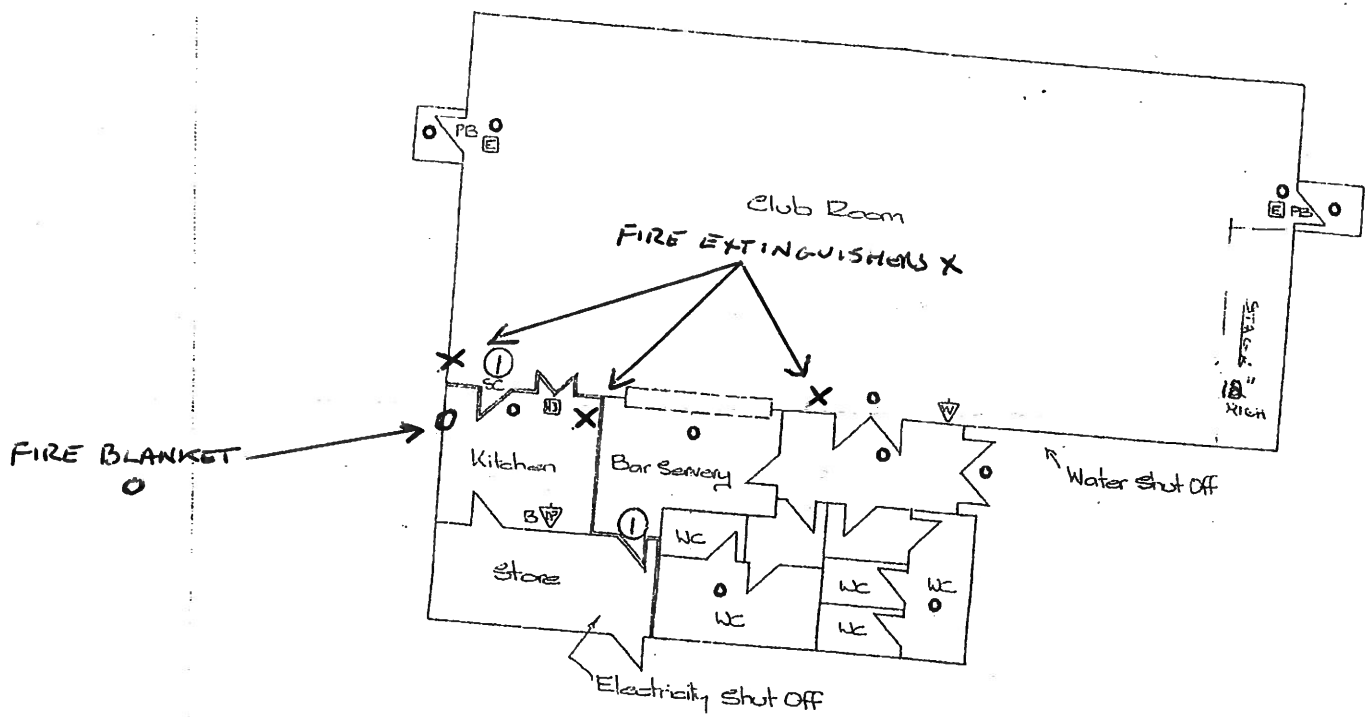 PB
E
Club Room
FIRE EXTINGUISHERS X
E PB
STAGE
12"
HIGH
1
SC
W
FIRE BLANKET
O
Kitchen
Bar Servery
Water Shut Off
B
1
WC
Store
WC
WC
WC
WC
Electricity Shut Off